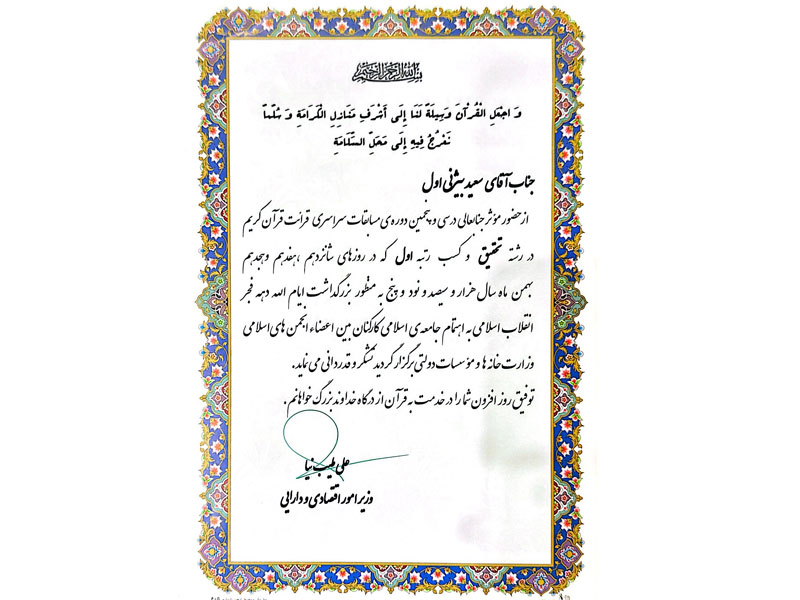 بسم الله الرحمن الرحیم
وَ اجْعَلِ الْقُرْآنَ وَسِیلَةً لَنَا إِلَى أَشْرَفِ مَنَازِلِ الْكَرَامَةِ وَ سُلَّماً
نَعْرُجُ فِیهِ إِلَى مَحَلِّ السَّلَامَةِ
جناب آقای سعید بیژنی اول
از حضور مؤثر جنابعالی در سی و پنجمین دوره‌ی مسابقات سراسری قرائت قرآن کریم
در رشته تحقیق و کسب رتبه اول که در روزهای شانزدهم ،هفدهم وهجدهم
بهمن ماه سال هزار و سیصد و نود و پنج به منظور بزرگداشت ایام الله دهه فجر
انقلاب اسلامی به اهتمام جامعه‌ی اسلامی کارکنان بین اعضاء انجمن های اسلامی
وزارت خانه ها و مؤسسات دولتی برگزار گردید تشکر و قدردانی می نماید.
توفیق روز افزون شما را در خدمت به قرآن از درگاه خداوند بزرگ خواهانم.
علی طیب نیا
وزیر امور اقتصادی و دارایی